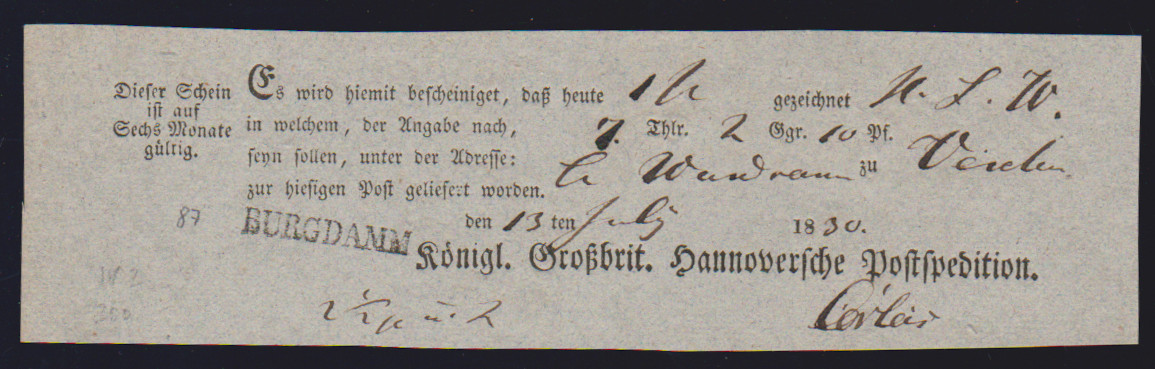 Dieser Schein
ist auf
Sechs Monate
gültig.
Es wird hiemit bescheiniget, daß heute gezeichnet H. L. W.
in welchem, der Angabe nach, 7. Thlr. 2 Ggr. 10 Pf.
seyn sollen, unter der Adresse: zu Verden
zur hiesigen Post geliefert worden.
den 13 ten July 1830.
87
BURGDAMM
Königl. Großbrit. Hannoversche Postspedition.